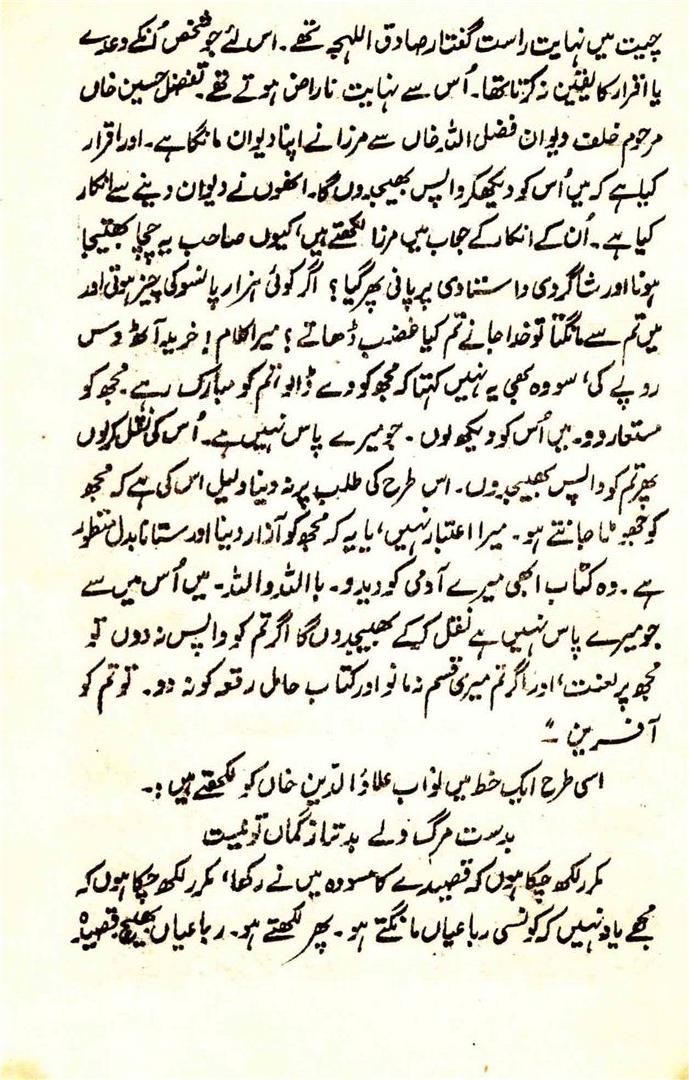 چیت میں نہایت راست گفتار صادق اللہجہ تھے۔ اس لئے جو شخص اُنکے وعدے
یا اقرار کا یقین نہ کرتا تھا۔ اُس سے نہایت ناراض ہوتے تھے۔ تفضل حسین خاں
مرحوم خلف دیوان فضل اللہ خاں سے مرزا نے اپنا دیوان مانگا ہے۔ اور اقرار
کیا ہے کہ میں اُس کو دیکھکر واپس بھیجدوں گا۔ انھوں نے دیوان دینے سے انکار
کیا ہے۔ اُن کے انکار کے جواب میں مرزا لکھتے ہیں، کیوں صاحب یہ چچا بھتیجا
ہونا اور شاگردی و استادی پر پانی پھر گیا؟ اگر کوئی ہزار پانسو کی چیز ہوتی اور
میں تم سے مانگتا تو خدا جانے تم کیا غضب ڈھاتے؟ میرا کلام! خرید آٹھ دس
روپے کی، سو وہ بھی یہ نہیں کہتا کہ مجھ کو دے ڈالو، تم کو مبارک رہے۔ مجھ کو
مستعار دو۔ میں اُس کو دیکھ لوں۔ جو میرے پاس نہیں ہے۔ اُس کی نقل کرلوں
پھر تم کو واپس بھیجدوں۔ اس طرح کی طلب پر نہ دینا دلیل اس کی ہے کہ مجھ
کو جھوٹا جانتے ہو۔ میرا اعتبار نہیں، یا یہ کہ مجھ کو آزار دینا اور ستانا بدل منظور
ہے۔ وہ کتاب ابھی میرے آدمی کو دیدو۔ باللہ واللہ۔ میں اُس میں سے
جو میرے پاس نہیں ہے نقل کرکے بھیجدوں گا اگر تم کو واپس نہ دوں تو
مجھ پر لعنت، اور اگر تم میری قسم نہ مانو اور کتاب حامل رقعہ کو نہ دو۔ تو تم کو
آفرین۔"
اسی طرح ایک خط میں نواب علاؤ الدین خاں کو لکھتے ہیں:۔
بدست مرگ ولے بدتر از گماں تو نیست
مکرر لکھ چکا ہوں کہ قصیدے کا مسودہ میں نے رکھا، مکرر لکھ چکا ہوں کہ
مجھے یاد نہیں کہ کونسی رباعیاں مانگتے ہو۔ پھر لکھتے ہو۔ رباعیاں بھیج، قصیدہ